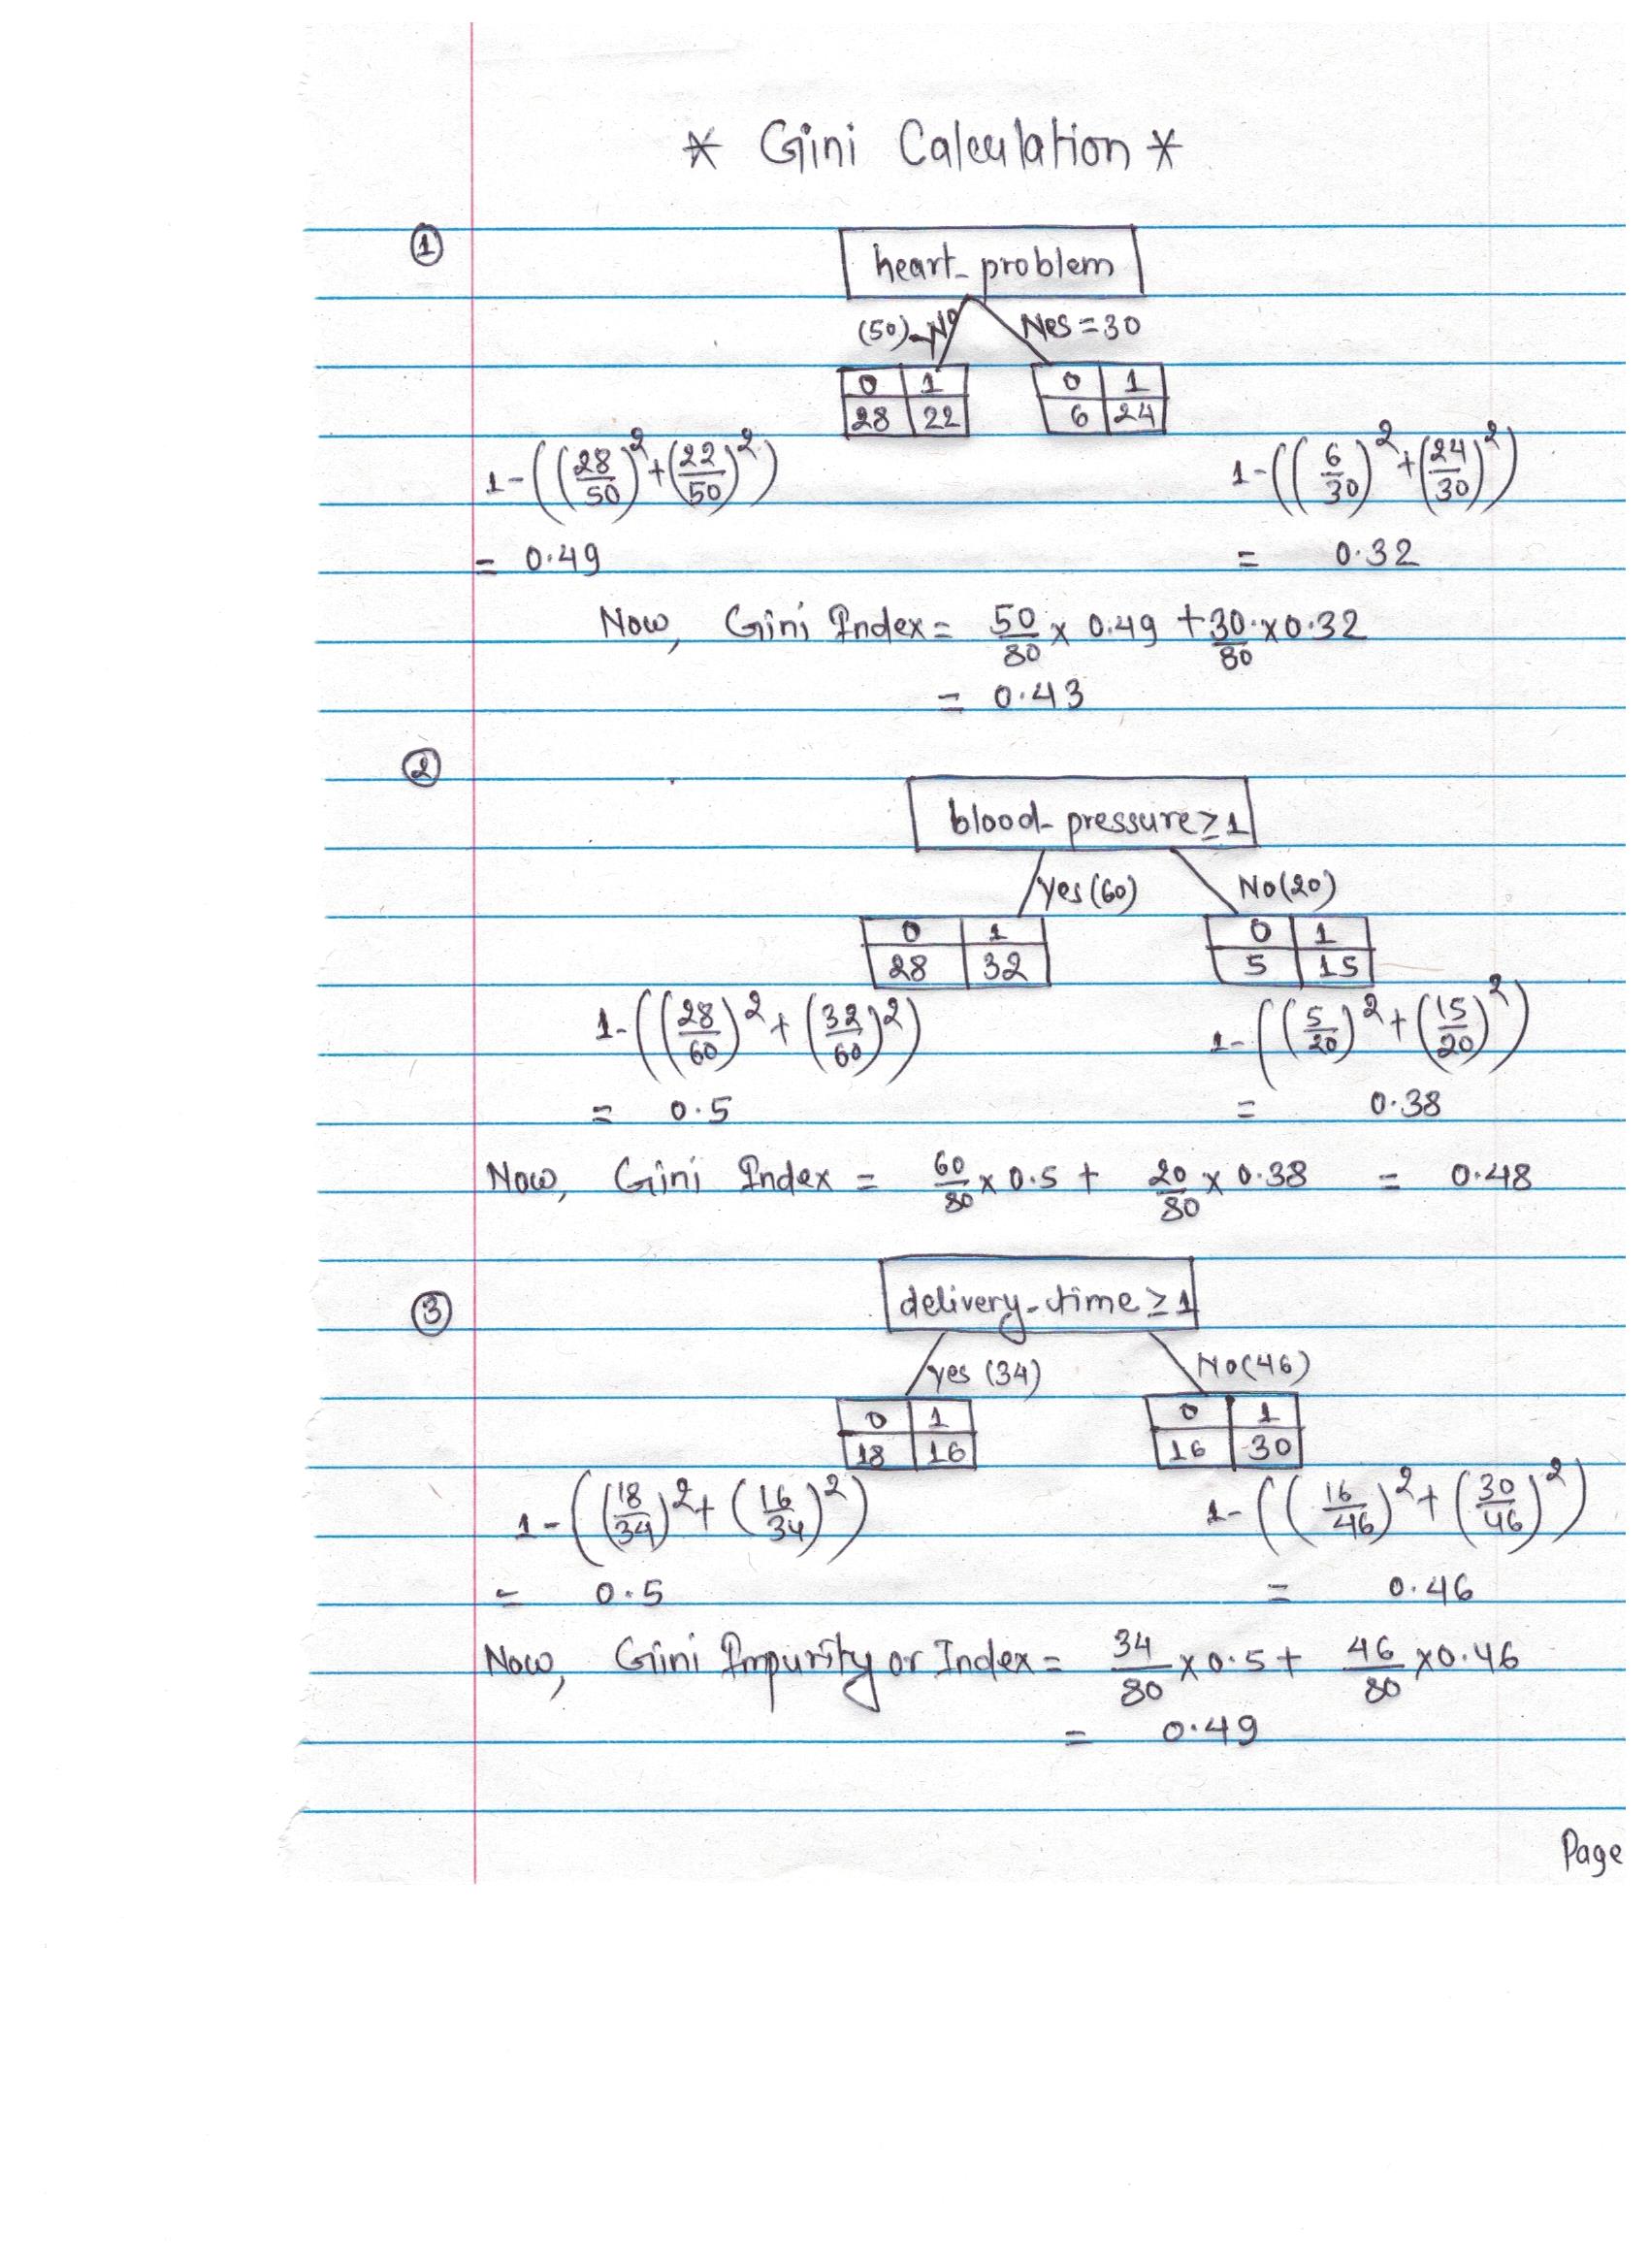 * Gini Calculation *
①
heart_problem
(50) No Yes = 30
0 1 0 1
28 22 6 24
1-((28/50)²+(22/50)²) 1-((6/30)²+(24/30)²)
= 0.49 = 0.32
Now, Gini Index = 50/80 x 0.49 + 30/80 x 0.32
= 0.43
②
blood_pressure ≥ 1
Yes (60) No (20)
0 1 0 1
28 32 5 15
1-((28/60)²+(32/60)²) 1-((5/20)²+(15/20)²)
= 0.5 = 0.38
Now, Gini Index = 60/80 x 0.5 + 20/80 x 0.38 = 0.48
③
delivery_time ≥ 1
Yes (34) No (46)
0 1 0 1
18 16 16 30
1-((18/34)²+(16/34)²) 1-((16/46)²+(30/46)²)
= 0.5 = 0.46
Now, Gini Impurity or Index = 34/80 x 0.5 + 46/80 x 0.46
= 0.49
Page